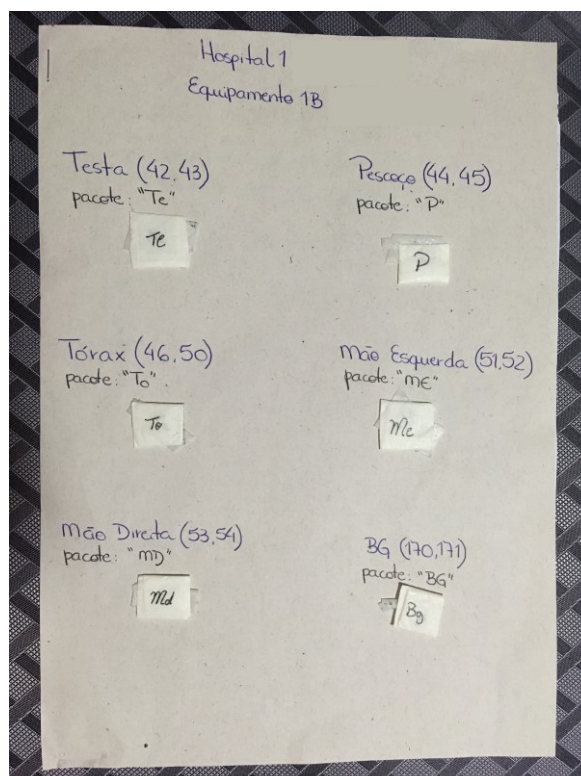 Hospital 1
Equipamento 1B
Testa (42,43)
pacote: "Te"
Te
Pescoço (44,45)
pacote: "P"
P
Tórax (46,50)
pacote: "To"
To
Mão Esquerda (51,52)
pacote: "ME"
Me
Mão Direita (53,54)
pacote: "MD"
Md
BG (170,171)
pacote: "BG"
Bg